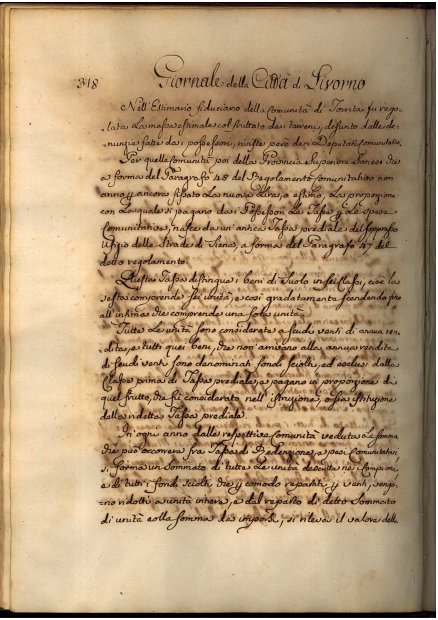 318 Giornale della Città di Livorno
Nell'Estimario fiduciario della comunità di Torrita fu rego-
lata La massa estimale col fruttato dei terreni, desunto dalle de-
nunzie fatte dai possessori, riviste però dei Deputati comunitativi
Per quelle comunità poi della Provincia Superiore Sanese che
a forma del Paragrafo 48 del Regolamento comunitativo non
anno p ancora fissato La nuova Lira, o estimo, La proporzione
con La quale si pagano dai Possessori Le Tasse, e Le spese
comunitative, nasce da un'antica Tassa prediale del soppresso
Ufizio delle Strade di Siena, a forma del Paragrafo 47 del
detto regolamento
Questa Tassa distingue i beni di Suolo in sei classi, cioè la
sesta comprende sei unità, e così gradatamente scendendo fino
all'infima che comprende una sola unità.
Tutte Le unità sono considerate a scudi venti di annua ren-
dita, e tutti quei beni, che non arrivano alla annua rendita
di scudi venti sono denominati fondi sciolti, ed esclusi dalla
Classe prima di Tassa prediale, e pagano in proporzione di
quel frutto, che fu considerato nell'istruzione, o sia istituzione
della ridetta Tassa prediale.
In ogni anno dalle respettive comunità veduta La somma
che può occorrere fra Tassa di Redenzione, e pesi comunitativi
si forma un Sommato di tutte Le unità descritte nei campioni
e di tutti i fondi sciolti che p comodo repartiti p venti, vengo-
no ridotti a unità intera, e dal reparto di detto Sommato
di unità colla somma da imporsi, si rileva il valore dell